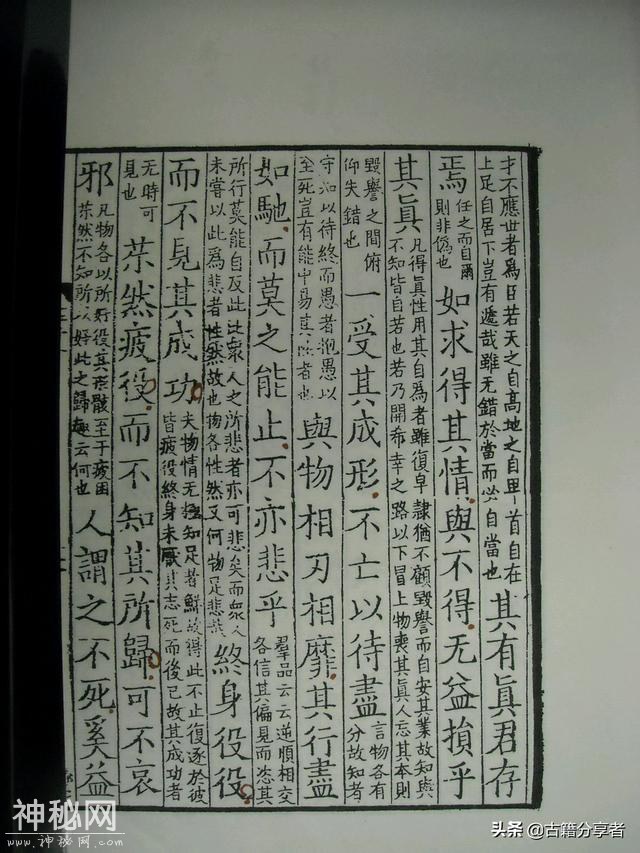 才不應世者爲臣若天之自高地之自卑首自在
上足自居下豈有遞哉雖无錯於當而必自當也
其有眞君存
焉
任之而自爾
則非僞也
如求得其情與不得无益損乎
其眞
凡得真性用其自爲者雖復皁隸猶不顧毀譽而自安其業故知與
不知皆自若也若乃開希幸之路以下冒上物喪其真人忘其本則
毀譽之間俯
仰失錯也
一受其成形不亡以待盡
言物各有
分故知者
守知以待終而愚者抱愚以
至死豈有能中易其性者也
與物相刃相靡其行盡
如馳而莫之能止不亦悲乎
羣品云云逆順相交
各信其偏見而恣其
所行莫能自反此比衆人之所悲者亦可悲矣而衆人
未嘗以此爲悲者性然故也物各性然又何物足悲哉
終身役役
而不見其成功
夫物情无極知足者鮮故得此不止復逐於彼
皆疲役終身未厭其志死而後已故其成功者
无時可
見也
苶然疲役而不知其所歸可不哀
邪
凡物各以所好役其形骸至于疲困
苶然不知所以好此之歸趣云何也
人謂之不死奚益
神秘网
www.神秘网.com
头条 @古籍分享者